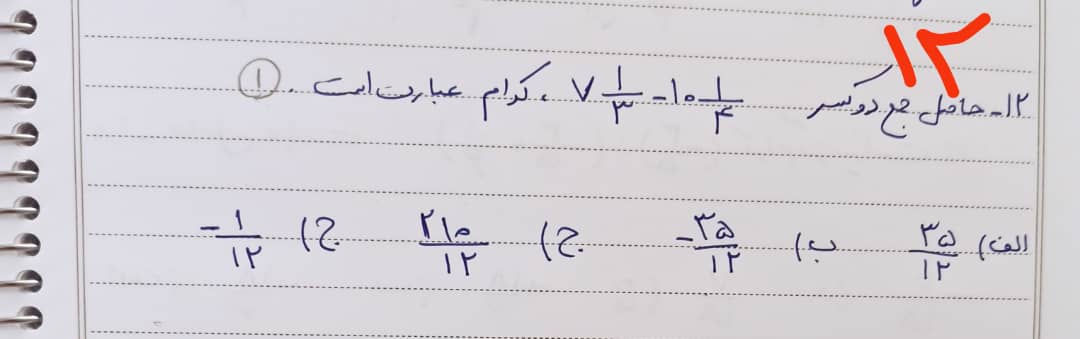 ۱۲
۱۲- حاصل جمع دو کسر ۷ ۱/۳ - ۱۰ ۱/۴ ، کدام عبارت است . ۱
الف) ۳۵/۱۲ ب) -۳۵/۱۲ ج) ۲۱۰/۱۲ ج) -۱/۱۲